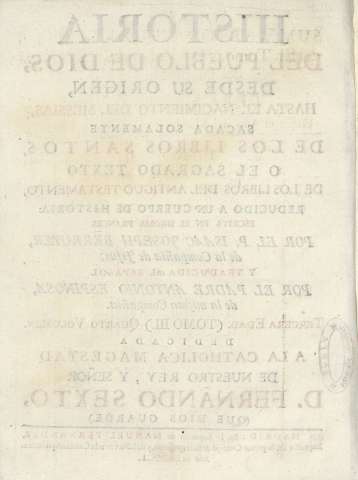 HISTORIA
DEL PUEBLO DE DIOS,
DESDE SU ORIGEN,
HASTA EL NACIMIENTO DEL MESSIAS,
SACADA SOLAMENTE
DE LOS LIBROS SANTOS,
O EL SAGRADO TEXTO
DE LOS LIBROS DEL ANTIGUO TESTAMENTO,
REDUCIDO A UN CUERPO DE HISTORIA.
ESCRITA EN EL IDIOMA FRANCES
POR EL P. ISAAC JOSEPH BERRUYER,
de la Compañia de Jesus.
Y TRADUCIDA AL ESPAÑOL
POR EL PADRE ANTONIO ESPINOSA,
de la misma Compañia.
TERCERA EDAD. (TOMO III) QUARTO VOLUMEN
DEDICADA
A LA CATHOLICA MAGESTAD
DE NUESTRO REY, Y SEÑOR
D. FERNANDO SEXTO,
(QUE DIOS GUARDE)
EN MADRID: MANUEL FERNANDEZ,